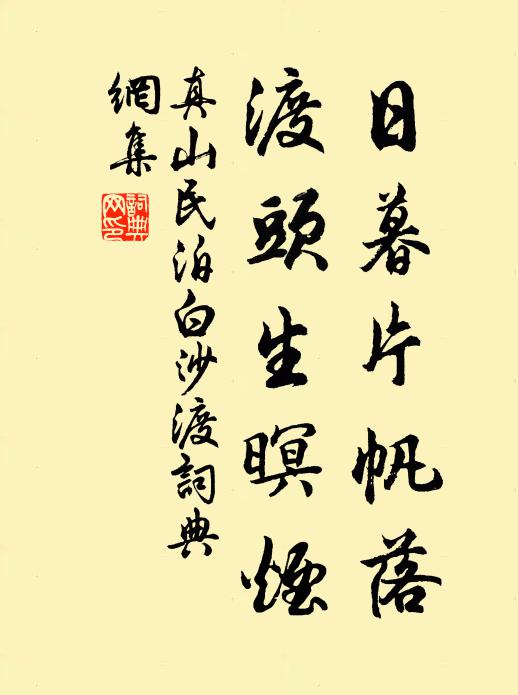 日暮片帆落
渡頭生暝煙
真山民泊白沙渡詞典
網集
詞典
网印